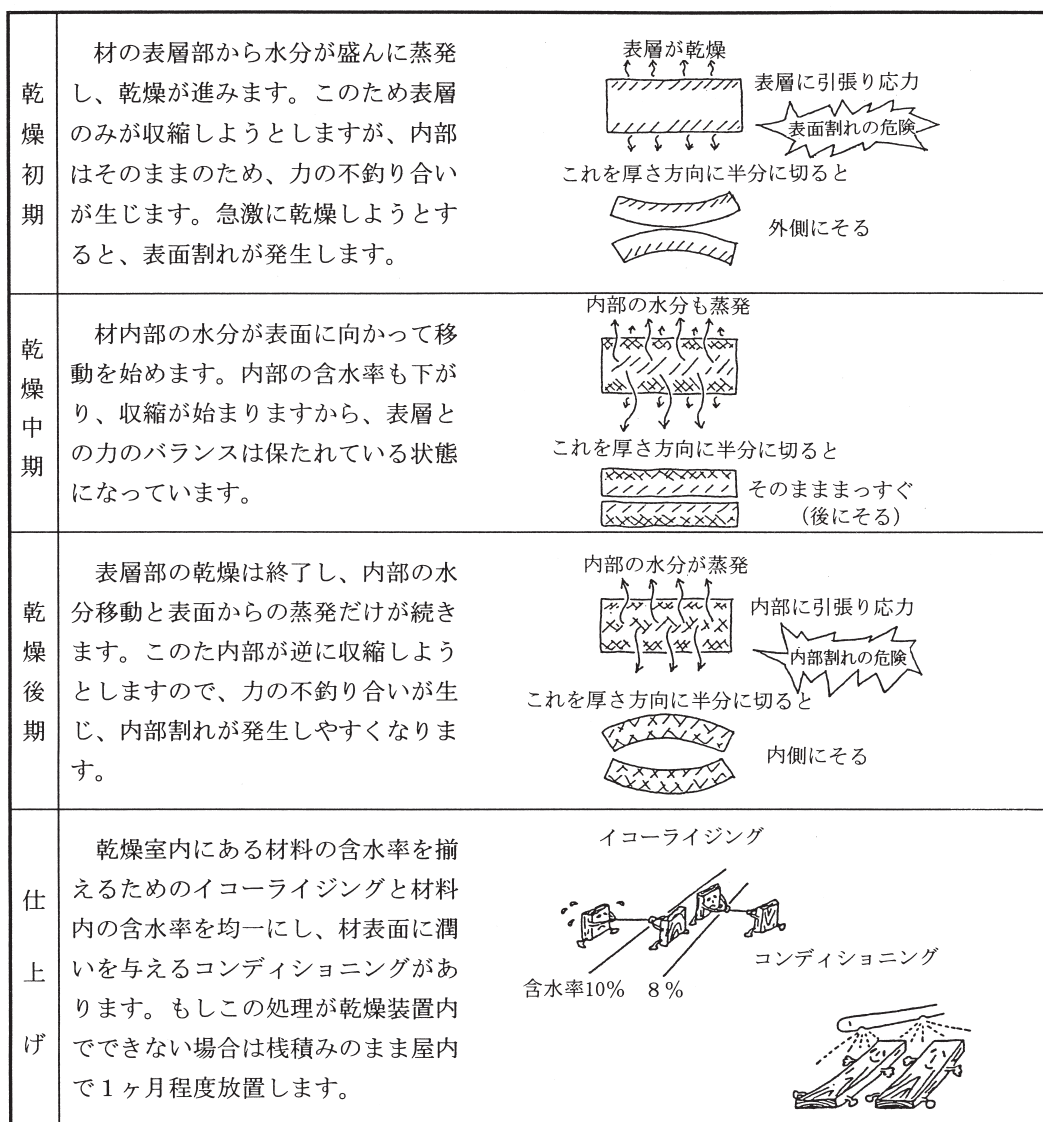 乾燥初期
材の表層部から水分が盛んに蒸発
し、乾燥が進みます。このため表層
のみが収縮しようとしますが、内部
はそのままのため、力の不釣り合い
が生じます。急激に乾燥しようとす
ると、表面割れが発生します。
表層が乾燥
表層に引張り応力
表面割れの危険
これを厚さ方向に半分に切ると
外側にそる
乾燥中期
材内部の水分が表面に向かって移
動を始めます。内部の含水率も下が
り、収縮が始まりますから、表層と
の力のバランスは保たれている状態
になっています。
内部の水分も蒸発
これを厚さ方向に半分に切ると
そのまままっすぐ
（後にそる）
乾燥後期
表層部の乾燥は終了し、内部の水
分移動と表面からの蒸発だけが続き
ます。このた内部が逆に収縮しよう
としますので、力の不釣り合いが生
じ、内部割れが発生しやすくなりま
す。
内部の水分が蒸発
内部に引張り応力
内部割れの危険
これを厚さ方向に半分に切ると
内側にそる
仕上げ
乾燥室内にある材料の含水率を揃
えるためのイコーライジングと材料
内の含水率を均一にし、材表面に潤
いを与えるコンディショニングがあ
ります。もしこの処理が乾燥装置内
でできない場合は桟積みのまま屋内
で１ヶ月程度放置します。
イコーライジング
含水率10% ８%
コンディショニング